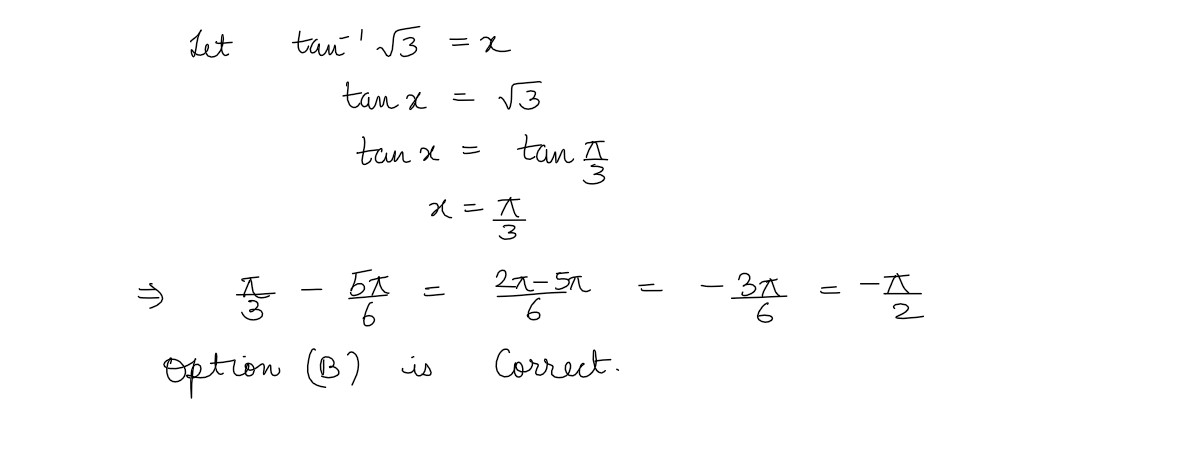 Let tan⁻¹ √3 = x
tan x = √3
tan x = tan π/3
x = π/3
⇒ π/3 - 5π/6 = 2π-5π/6 = -3π/6 = -π/2
Option (B) is Correct.